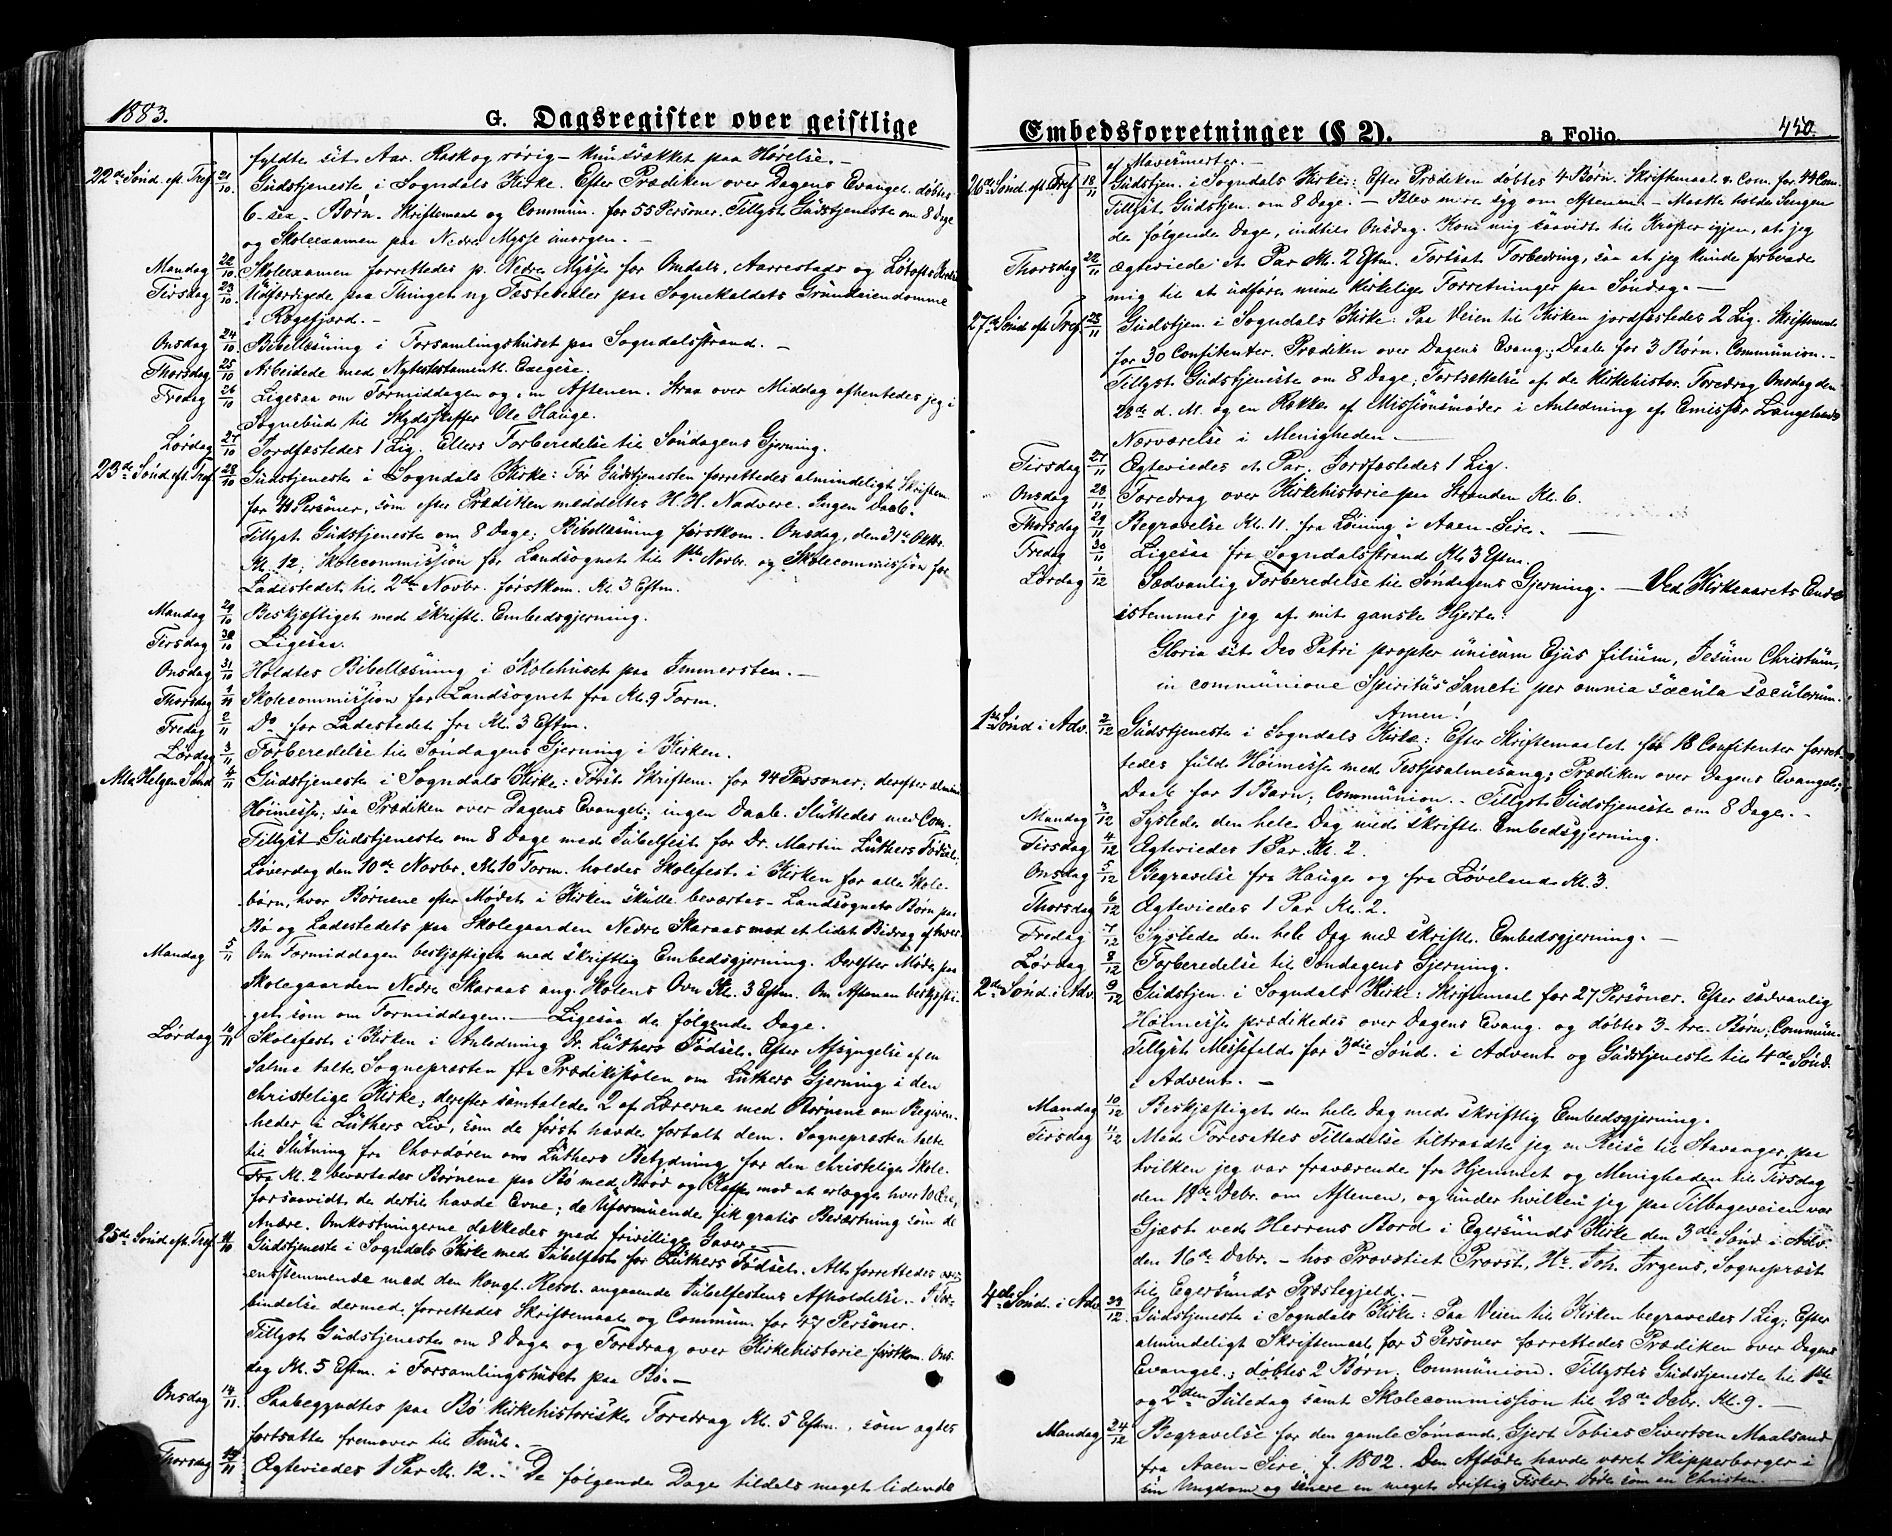 1883.
G. Dagsregister over geistlige
fyldte sit Aar. Rask og rørig – kun svækket paa Hørelse. –
22de Sønd. ef. Tref. 21/10 Gudstjeneste i Sogndals Kirke. Efter Prædiken over Dagens Evangel. døbtes
6 – sex – Børn. Skriftemaal og Commun. for 55 Personer. Tillyst Gudstjeneste om 8 Dage
og Skoleexamen paa Nedre Mysse imorgen. –
Mandag 22/10 Skoleexamen forrettedes p. Nedre Mysse for Omdals, Aarrestads og Løtofts Kreds.
Tirsdag 23/10 Udfærdigede paa Thinget ny Fæstesedler paa Sognekaldets Grundeiendomme
i Rægefjord. –
Onsdag 24/10 Bibellæsning i Forsamlingshuset paa Sogndalsstrand. –
Thorsdag 25/10 Arbeidede med Nytestamentl. Exegese.
Fredag 26/10 Ligesaa om Formiddagen og om Aftenen. Straa over Middag afhentedes jeg i
Sognebud til Skydsskaffer Ole Hauge.
Lørdag 27/10 Jordfæstedes 1 Lig. Ellers Forberedelse til Søndagens Gjerning.
23de Sønd. eft. Tref. 28/10 Gudstjeneste i Sogndals Kirke: Før Gudstjenesten forrettedes almindeligt Skriftem.
for 41 Personer, som efter Prædiken meddeltes H. H. Nadvere. Ingen Daab.
Tillyst Gudstjeneste om 8 Dage; Bibellæsning førstkom. Onsdag, den 31te Oktbr.
Kl. 12; Skolecommission for Landsognet til 1ste Novbr. og Skolecommission for
Ladestedet til 2den Novbr. førstkom. Kl. 3 Eftm.
Mandag 29/10 Beskjæftiget med skriftl. Embedsgjerning.
Tirsdag 30/10 Ligesaa.
Onsdag 31/10 Holdtes Bibellæsning i Skolehuset paa Immersten. –
Thorsdag 1/11 Skolecommission for Landsognet fra Kl. 9 Form.
Fredag 2/11 Do for Ladestedet fra Kl. 3 Eftm.
Lørdag 3/11 Forberedelse til Søndagens Gjerning i Kirken.
Alle Helgens Sønd. 4/11 Gudstjeneste i Sogndals Kirke: Først Skriftem. for 94 Personer; derefter almind.
Høimesse, saa Prædiken over Dagens Evangel.; ingen Daab. Sluttedes med Com.
Tillyst Gudstjeneste om 8 Dage med Jubelfest for Dr. Martin Luthers Fødsel;
Løverdag den 10de Novbr. Kl. 10 Form. holdes Skolefest i Kirken for alle Skole-
børn, hvor Børnene efter Mødet i Kirken skulle beværtes – Landsognets Børn paa
Bø og Ladestedets paa Skolegaarden Nedre Skaraas mod et lidet Bidrag af hver.
Mandag 5/11 Om Formiddagen beskjæftiget med skriftlig Embedsgjerning. Derefter Møde paa
Skolegaarden Nedre Skaraas ang. Skolens Ovn Kl. 3 Eftm. Om Aftenen beskjæfti-
get som om Formiddagen. – Ligesaa de følgende Dage.
Lørdag 10/11 Skolefest i Kirken i Anledning Dr. Luthers Fødsel. Efter Afsyngelse af en
Salme talte Sognepræsten fra Prædikestolen om Luthers Gjerning i den
christelige Kirke; derefter samtalede 2 af Lærerne med Børnene om Begiven-
heder i Luthers Liv, som de først havde fortalt dem. Sognepræsten talte
til Slutning fra Chordøren om Luthers Betydning for den christelige Skole.
Fra Kl. 2 beværtedes Børnene paa Bø med Brød og Kaffe mod at erlægge hver 10 Øre,
forsaavidt de dertil havde Evne; de Uformuende fik gratis Beværtning som de
Andre. Omkostningerne dækkedes med frivillige Gaver.
25de Sønd. eft. Tref. 11/10 Gudstjeneste i Sogndals Kirke med Jubelfest for Luthers Fødsel. Alt forrettedes over-
ensstemmende med den Kongl. Resol. angaaende Jubelfestens Afholdelse. I For-
bindelse dermed forrettedes Skriftemaal og Commun. for 47 Personer.
Tillyst Gudstjeneste om 8 Dage og Foredrag over Kirkehistorie førstkom. Ons-
dag Kl. 5 Eftm. i Forsamlingshuset paa Bø. –
Onsdag 14/11 Paabegyndtes paa Bø Kirkehistoriske Foredrag Kl. 5 Eftm., som agtes
fortsatte fremover til Juul. –
Thorsdag 15/11 Ægteviedes 1 Par Kl. 12. – De følgende Dage tildels meget lidende
Embedsforretninger (§ 2).
a Folio.
450.
af Mavesmerter. –
26de Sønd. eft. Tref. 18/11 Gudstjen. i Sogndals Kirke: Efter Prædiken døbtes 4 Børn. Skriftemaal & Com. for 44 Com.
Tillyst Gudstjen. om 8 Dage. – Blev mere syg om Aftenen. – Maatte holde Sengen
de følgende Dage, indtil Onsdag. Kom mig saavidt til Kræfter igjen, at jeg
Thorsdag 22/11 ægteviede et Par Kl. 2 Eftm. Fortsat Forbedring, saa at jeg kunde forberede
mig til at udføre mine kirkelige Forretninger paa Søndag. –
27de Sønd. eft. Tref. 25/11 Gudstjen. i Sogndals Kirke: Paa Veien til Kirken jordfæstedes 2 Lig. Skriftemaal
for 30 Confitenter. Prædiken over Dagens Evang.; Daab for 3 Børn. Communion. –
Tillyst Gudstjeneste om 8 Dage; Fortsættelse af de kirkehistor. Foredrag Onsdag den
28de d. M. og en Række af Missionsmøder i Anledning af Emissær Langelands
Nærværelse i Menigheden. –
Tirsdag 27/11 Ægteviedes et Par. Jordfæstedes 1 Lig.
Onsdag 28/11 Foredrag over Kirkehistorie paa Stranden Kl. 6.
Thorsdag 29/11 Begravelse Kl. 11. fra Løining i Aaen-Sire. –
Fredag 30/11 Ligesaa fra Sogndalsstrand Kl. 3 Eftm.
Lørdag 1/12 Sædvanlig Forberedelse til Søndagens Gjerning. – Ved Kirkeaarets Ende
istemmer jeg af mit ganske Hjerte:
Gloria sit Deo Patri propter unicum Ejus filium, Jesum Christum,
in communione Spiritus Sancti per omnia sæcula sæculorum.
Amen!
1ste Sønd i Adv. 2/12 Gudstjeneste i Sogndals Kirke: Efter Skriftemaalet for 18 Confitenter forret-
tedes fuld Høimesse med Festpsalmesang; Prædiken over Dagens Evangel.;
Daab for 1 Barn; Communion. – Tillyst Gudstjeneste om 8 Dage. –
Mandag 3/12 Syslede den hele Dag med skriftl. Embedsgjerning.
Tirsdag 4/12 Ægteviedes 1 Par Kl. 2.
Onsdag 5/12 Begravelse fra Hauge og fra Løveland Kl. 3.
Thorsdag 6/12 Ægteviedes 1 Par Kl. 2.
Fredag 7/12 Syslede den hele Dag med skriftl. Embedsgjerning. –
Lørdag 8/12 Forberedelse til Søndagens Gjerning.
2den Sønd. i Adv. 9/12 Gudstjen. i Sogndals Kirke: Skriftemaal for 27 Personer. Efter sædvanlig
Høimesse prædikedes over Dagens Evang. og døbtes 3 – tre – Børn; Commun.
Tillyst Messefald for 3die Sønd. i Advent og Gudstjeneste til 4de Sønd.
i Advent. –
Mandag 10/12 Beskjæftiget den hele Dag med skriftlig Embedsgjerning.
Tirsdag 11/12 Med Foresattes Tilladelse tiltraadte jeg en Reise til Stavanger, paa
hvilken jeg var fraværende fra Hjemmet og Menigheden til Tirsdag
den 18de Debr. om Aftenen, og under hvilken jeg paa Tilbageveien var
Gjæst ved Herrens Bord i Egersunds Kirke den 3die Sønd. i Adv.
den 16de Debr. – hos Provstiet Provst, Hr. Joh. Jrgens, Sognepræst
til Egersunds Præstegjeld. –
4de Sønd. i Adv. 23/12 Gudstjeneste i Sogndals Kirke: Paa Veien til Kirken begravedes 1 Lig; Efter
almindeligt Skriftemaal for 5 Personer forrettedes Prædiken over Dagens
Evangel.; døbtes 2 Børn; Communion. Tillystes Gudstjeneste til 1ste
og 2den Juledag samt Skolecommission til 28de Debr. Kl. 9. –
Mandag 24/12 Begravelse for den gamle Sømand, Gjert Tobias Sivertsen Maalsand
fra Aaen-Sire, f. 1802. Den Afdøde havde været Skipperborger i
sin Ungdom og senere en meget driftig Fisker. Døde som en Christen. –